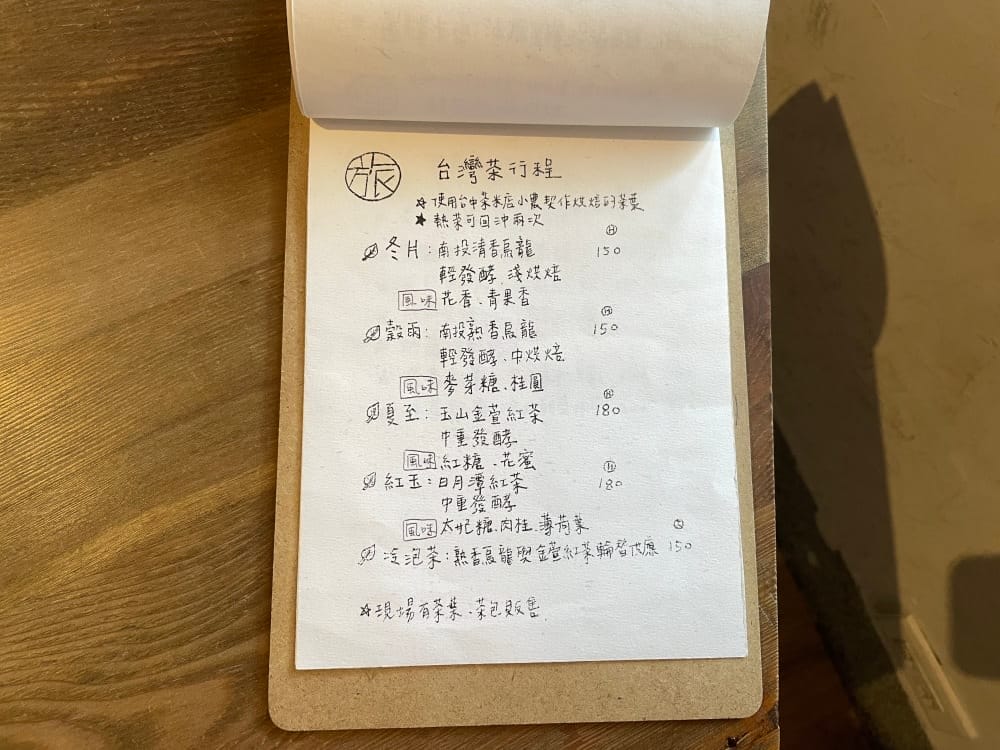 旅 台灣茶行程
☆使用台中茶米店小農契作烘焙的茶葉
★熱茶可回沖兩次
Ⓗ
冬片：南投清香烏龍 150
輕發酵、淺烘焙
風味 花香、青果香
Ⓗ
穀雨：南投熟香烏龍 150
輕發酵、中烘焙
風味 麥芽糖、桂圓
Ⓗ
夏至：玉山金萱紅茶 180
中重發酵
風味 紅糖、花蜜
Ⓗ
紅玉：日月潭紅茶 180
中重發酵
風味 太妃糖、肉桂、薄荷葉
冷泡茶：熟香烏龍與金萱紅茶輪替供應 150
☆現場有茶葉、茶包販售